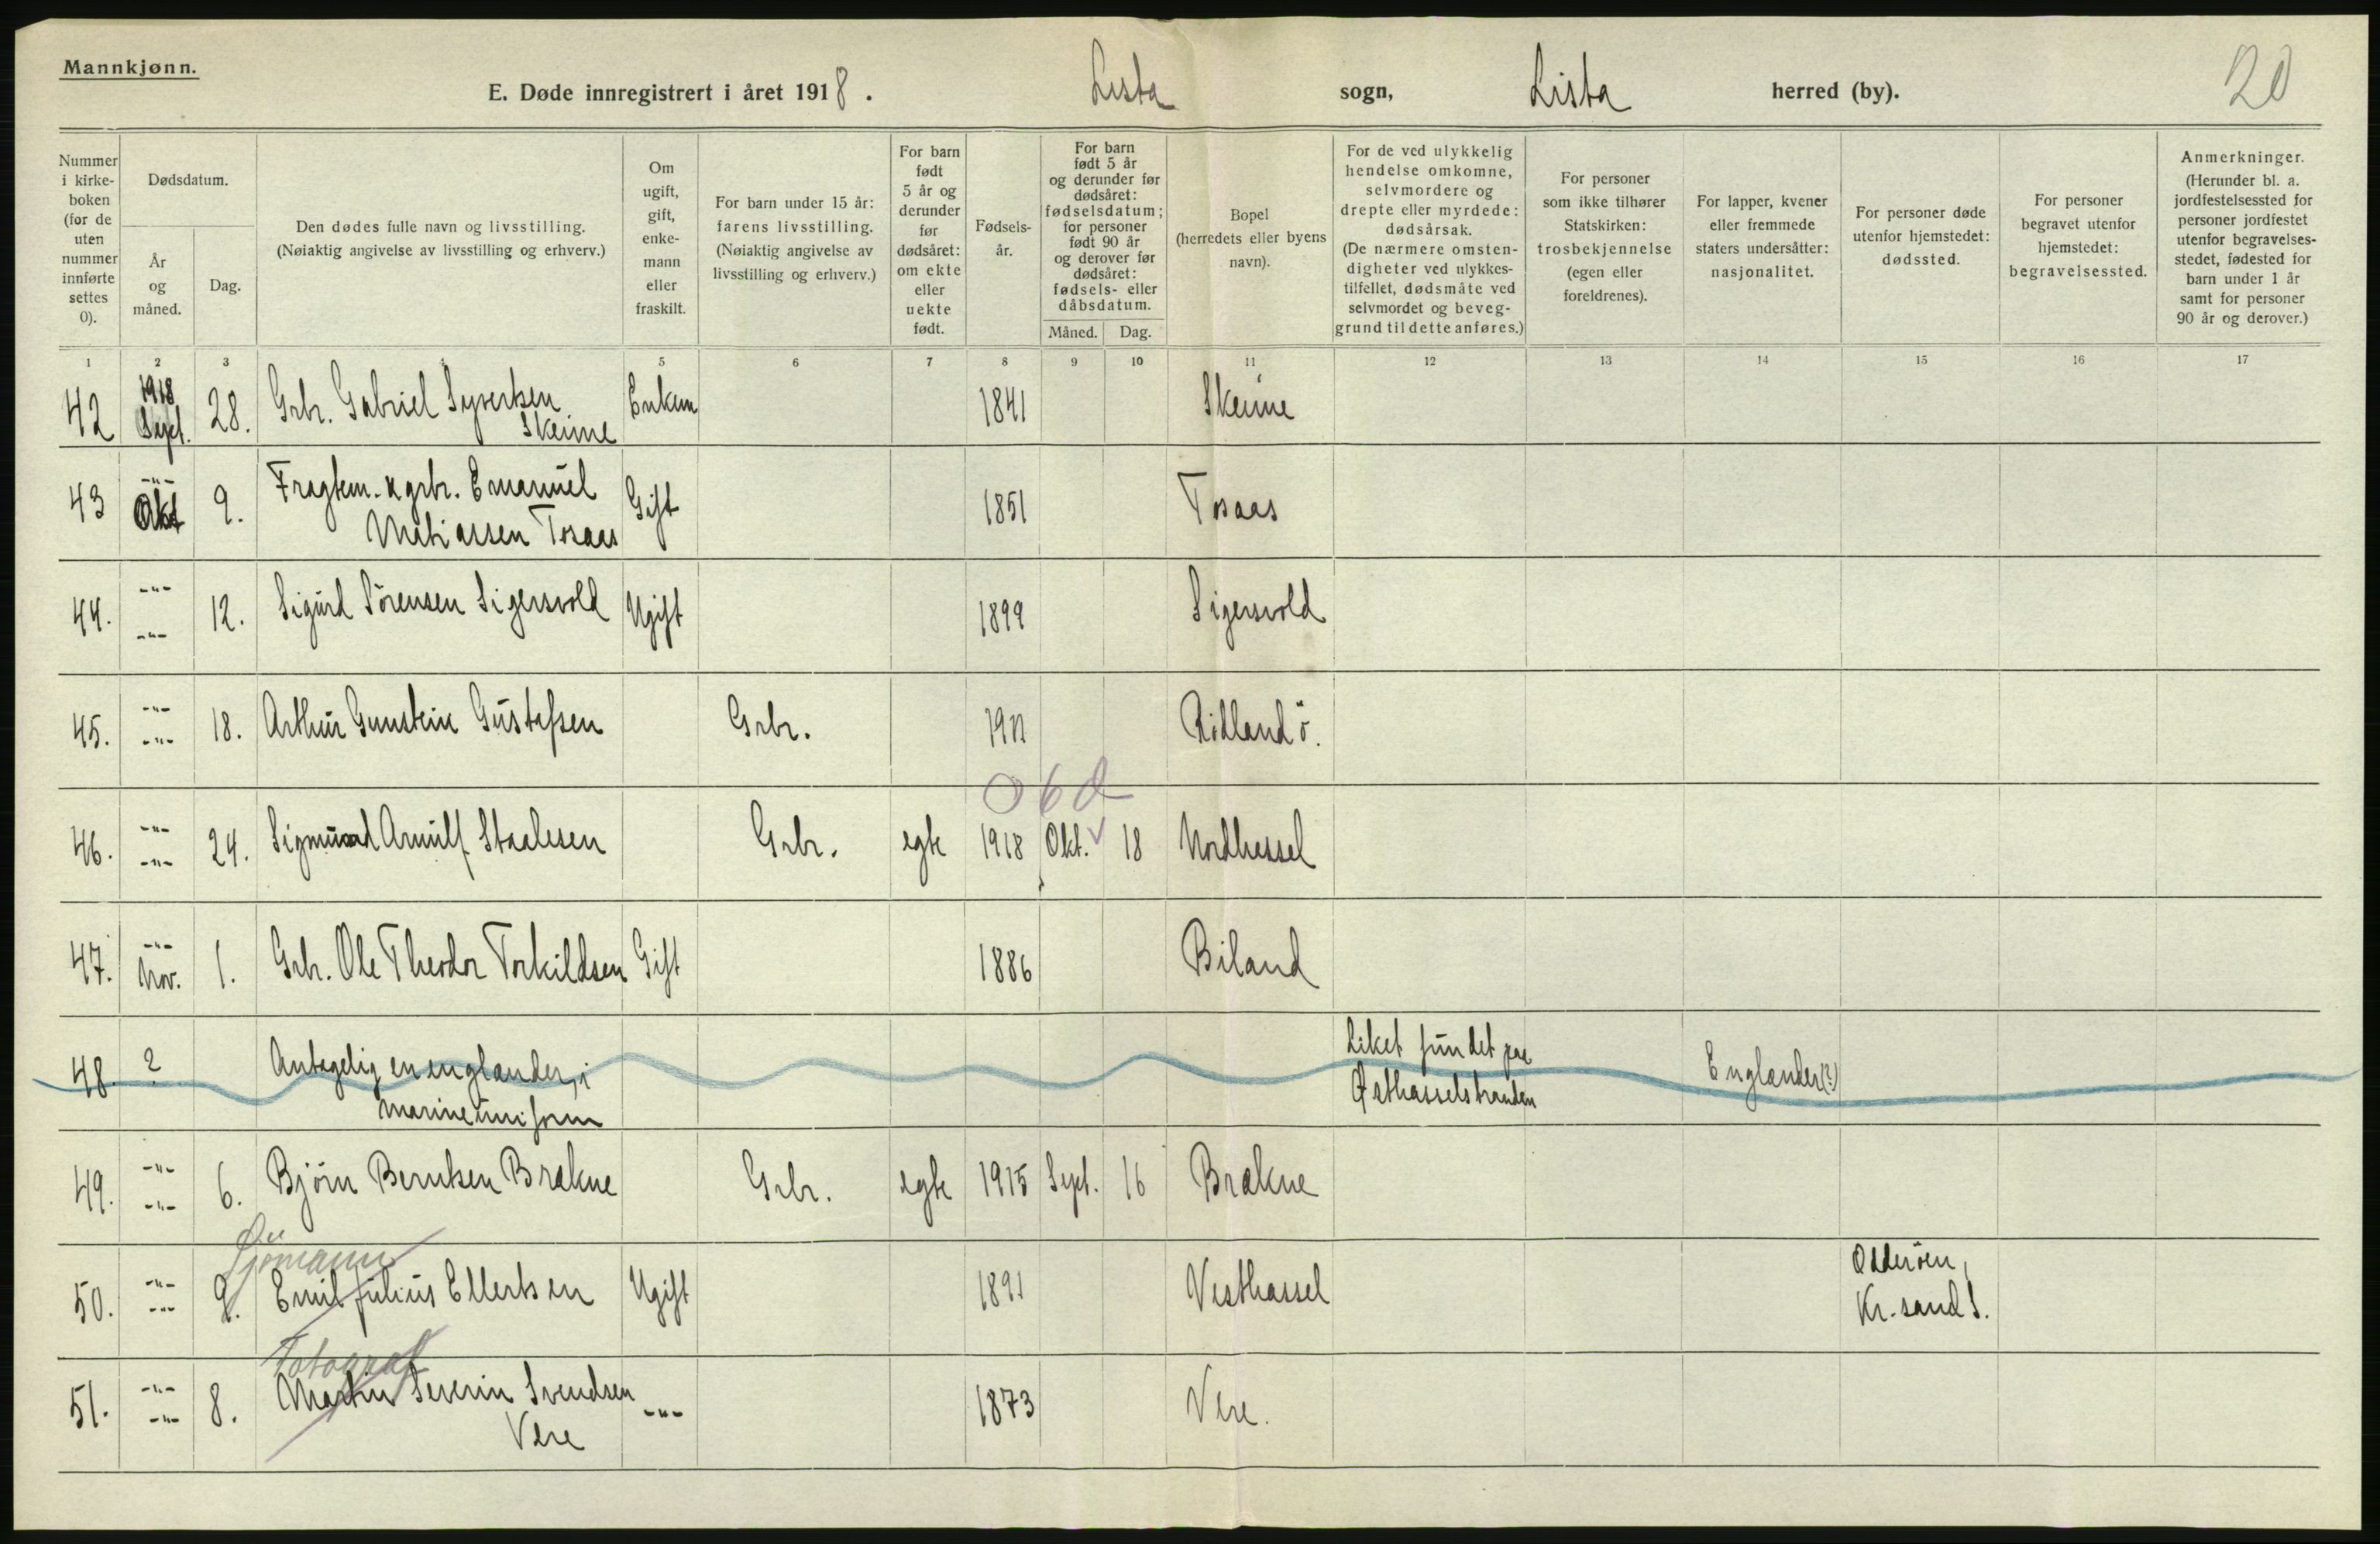 Mannkjønn.
E. Døde innregistrert i året 1918. Lista sogn, Lista herred (by). 20
Nummer i kirke-boken (for de uten nummer innførte settes 0).
Dødsdatum.
År og måned.
Dag.
Den dødes fulle navn og livsstilling.
(Nøiaktig angivelse av livsstilling og erhverv.)
Om ugift, gift, enke-mann eller fraskilt.
For barn under 15 år: farens livsstilling.
(Nøiaktig angivelse av livsstilling og erhverv.)
For barn født 5 år og derunder før dødsåret: om ekte eller uekte født.
Fødsels-år.
For barn født 5 år og derunder før dødsåret: fødselsdatum; for personer født 90 år og derover før dødsåret: fødsels- eller dåbsdatum.
Måned. Dag.
Bopel (herredets eller byens navn).
For de ved ulykkelig hendelse omkomne, selvmordere og drepte eller myrdede: dødsårsak.
(De nærmere omsten-digheter ved ulykkes-tilfellet, dødsmåte ved selvmordet og beveg-grund til dette anføres.)
For personer som ikke tilhører Statskirken: trosbekjennelse (egen eller foreldrenes).
For lapper, kvener eller fremmede staters undersåtter: nasjonalitet.
For personer døde utenfor hjemstedet: dødssted.
For personer begravet utenfor hjemstedet: begravelsessted.
Anmerkninger.
(Herunder bl. a. jordfestelsessted for personer jordfestet utenfor begravelses-stedet, fødested for barn under 1 år samt for personer 90 år og derover.)
1 2 3 4 5 6 7 8 9 10 11 12 13 14 15 16 17
42 1918 Sept. 28. Grbr. Gabriel Syvertsen Skeime Enkem 1841 Skeime
43 -"- Okt 9. Fragtem. & grbr. Emanuel Mathiassen Tosaas Gift 1851 Tosaas
44. -"- -"- 12. Sigurd Sörensen Sigersvold Ugift 1899 Sigersvold
45. -"- -"- 18. Arthur Gunstein Gustafsen Grbr. 1911 Rödland ö.
06d
46. -"- -"- 24. Sigmund Arnulf Staalesen Grbr. egte 1918 Okt. 18 Nordhassel
47. -"- Nov. 1. Grbr. Ole Theodor Torkildsen Gift 1886 Biland
48. ? Antagelig en englænder, i marineuniform Liket fundet paa Østhasselstranden Englænder(?)
49. -"- -"- 6. Bjørn Berntsen Brækne Grbr. egte 1915 Sept. 16 Brækne
Sjömann
50. -"- -"- 9. Emil Julius Ellertsen Ugift 1891 Vesthassel Odderöen, Kr.sand S.
Fotograf
51. -"- -"- 8. Martin Severin Svendsen Vere -"- 1873 Vere.